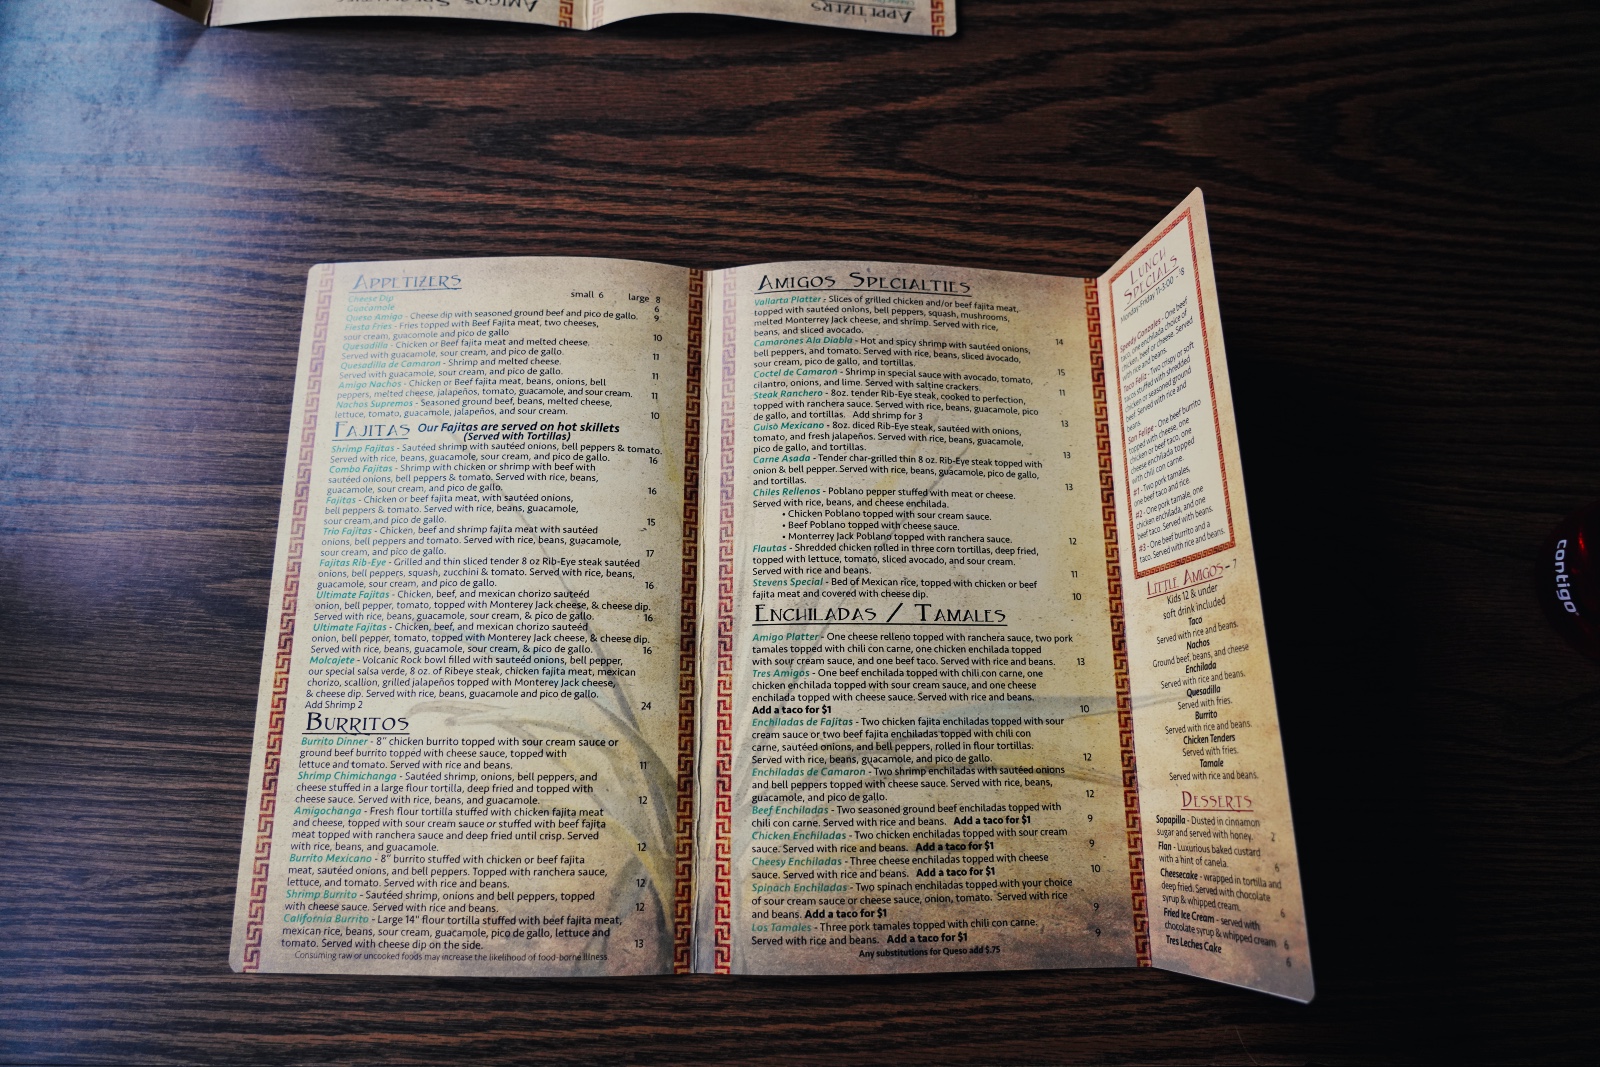 APPETIZERS
AMIGOS SPECIALTIES
APPETIZERS
Cheese Dip small 6 large 8
Guacamole 6
Queso Amigo - Cheese dip with seasoned ground beef and pico de gallo. 9
Fiesta Fries - Fries topped with Beef Fajita meat, two cheeses,
sour cream, guacomole and pico de gallo 10
Quesadilla - Chicken or Beef fajita meat and melted cheese.
Served with guacamole, sour cream, and pico de gallo. 11
Quesadilla de Camaron - Shrimp and melted cheese.
Served with guacamole, sour cream, and pico de gallo. 11
Amigo Nachos - Chicken or Beef fajita meat, beans, onions, bell
peppers, melted cheese, jalapeños, tomato, guacamole, and sour cream. 11
Nachos Supremos - Seasoned ground beef, beans, melted cheese,
lettuce, tomato, guacamole, jalapeños, and sour cream. 10
FAJITAS Our Fajitas are served on hot skillets
(Served with Tortillas)
Shrimp Fajitas - Sautéed shrimp with sautéed onions, bell peppers & tomato.
Served with rice, beans, guacamole, sour cream, and pico de gallo. 16
Combo Fajitas - Shrimp with chicken or shrimp with beef with
sautéed onions, bell peppers & tomato. Served with rice, beans,
guacamole, sour cream, and pico de gallo. 16
Fajitas - Chicken or beef fajita meat, with sautéed onions,
bell peppers & tomato. Served with rice, beans, guacamole,
sour cream,and pico de gallo. 15
Trio Fajitas - Chicken, beef and shrimp fajita meat with sautéed
onions, bell peppers and tomato. Served with rice, beans, guacamole,
sour cream, and pico de gallo. 17
Fajitas Rib-Eye - Grilled and thin sliced tender 8 oz Rib-Eye steak sautéed
onions, bell peppers, squash, zucchini & tomato. Served with rice, beans,
guacamole, sour cream, and pico de gallo. 16
Ultimate Fajitas - Chicken, beef, and mexican chorizo sautéed
onion, bell pepper, tomato, topped with Monterey Jack cheese, & cheese dip.
Served with rice, beans, guacamole, sour cream, & pico de gallo. 16
Ultimate Fajitas - Chicken, beef, and mexican chorizo sautéed
onion, bell pepper, tomato, topped with Monterey Jack cheese, & cheese dip.
Served with rice, beans, guacamole, sour cream, & pico de gallo. 16
Molcajete - Volcanic Rock bowl filled with sautéed onions, bell pepper,
our special salsa verde, 8 oz. of Ribeye steak, chicken fajita meat, mexican
chorizo, scallion, grilled jalapeños topped with Monterey Jack cheese,
& cheese dip. Served with rice, beans, guacamole and pico de gallo.
Add Shrimp 2 24
BURRITOS
Burrito Dinner - 8" chicken burrito topped with sour cream sauce or
ground beef burrito topped with cheese sauce, topped with
lettuce and tomato. Served with rice and beans. 11
Shrimp Chimichanga - Sautéed shrimp, onions, bell peppers, and
cheese stuffed in a large flour tortilla, deep fried and topped with
cheese sauce. Served with rice, beans, and guacamole. 12
Amigochanga - Fresh flour tortilla stuffed with chicken fajita meat
and cheese, topped with sour cream sauce or stuffed with beef fajita
meat topped with ranchera sauce and deep fried until crisp. Served
with rice, beans, and guacamole. 12
Burrito Mexicano - 8" burrito stuffed with chicken or beef fajita
meat, sautéed onions, and bell peppers. Topped with ranchera sauce,
lettuce, and tomato. Served with rice and beans. 12
Shrimp Burrito - Sautéed shrimp, onions and bell peppers, topped
with cheese sauce. Served with rice and beans. 12
California Burrito - Large 14" flour tortilla stuffed with beef fajita meat,
mexican rice, beans, sour cream, guacamole, pico de gallo, lettuce and
tomato. Served with cheese dip on the side. 13
Consuming raw or uncooked foods may increase the likelihood of food-borne illness.
AMIGOS SPECIALTIES
Vallarta Platter - Slices of grilled chicken and/or beef fajita meat,
topped with sautéed onions, bell peppers, squash, mushrooms,
melted Monterrey Jack cheese, and shrimp. Served with rice,
beans, and sliced avocado. 14
Camarones Ala Diabla - Hot and spicy shrimp with sautéed onions,
bell peppers, and tomato. Served with rice, beans, sliced avocado,
sour cream, pico de gallo, and tortillas. 15
Coctel de Camaron - Shrimp in special sauce with avocado, tomato,
cilantro, onions, and lime. Served with saltine crackers. 11
Steak Ranchero - 8oz. tender Rib-Eye steak, cooked to perfection,
topped with ranchera sauce. Served with rice, beans, guacamole, pico
de gallo, and tortillas. Add shrimp for 3 13
Guiso Mexicano - 8oz. diced Rib-Eye steak, sautéed with onions,
tomato, and fresh jalapeños. Served with rice, beans, guacamole,
pico de gallo, and tortillas. 13
Carne Asada - Tender char-grilled thin 8 oz. Rib-Eye steak topped with
onion & bell pepper. Served with rice, beans, guacamole, pico de gallo,
and tortillas. 13
Chiles Rellenos - Poblano pepper stuffed with meat or cheese.
Served with rice, beans, and cheese enchilada.
• Chicken Poblano topped with sour cream sauce.
• Beef Poblano topped with cheese sauce.
• Monterrey Jack Poblano topped with ranchera sauce. 12
Flautas - Shredded chicken rolled in three corn tortillas, deep fried,
topped with lettuce, tomato, sliced avocado, and sour cream.
Served with rice and beans. 11
Stevens Special - Bed of Mexican rice, topped with chicken or beef
fajita meat and covered with cheese dip. 10
ENCHILADAS / TAMALES
Amigo Platter - One cheese relleno topped with ranchera sauce, two pork
tamales topped with chili con carne, one chicken enchilada topped
with sour cream sauce, and one beef taco. Served with rice and beans. 13
Tres Amigos - One beef enchilada topped with chili con carne, one
chicken enchilada topped with sour cream sauce, and one cheese
enchilada topped with cheese sauce. Served with rice and beans.
Add a taco for $1 10
Enchiladas de Fajitas - Two chicken fajita enchiladas topped with sour
cream sauce or two beef fajita enchiladas topped with chili con
carne, sautéed onions, and bell peppers, rolled in flour tortillas.
Served with rice, beans, guacamole, and pico de gallo. 12
Enchiladas de Camaron - Two shrimp enchiladas with sautéed onions
and bell peppers topped with cheese sauce. Served with rice, beans,
guacamole, and pico de gallo. 12
Beef Enchiladas - Two seasoned ground beef enchiladas topped with
chili con carne. Served with rice and beans. Add a taco for $1 9
Chicken Enchiladas - Two chicken enchiladas topped with sour cream
sauce. Served with rice and beans. Add a taco for $1 9
Cheesy Enchiladas - Three cheese enchiladas topped with cheese
sauce. Served with rice and beans. Add a taco for $1 10
Spinach Enchiladas - Two spinach enchiladas topped with your choice
of sour cream sauce or cheese sauce, onion, tomato. Served with rice
and beans. Add a taco for $1 9
Los Tamales - Three pork tamales topped with chili con carne.
Served with rice and beans. Add a taco for $1 9
Any substitutions for Queso add $.75
LUNCH
SPECIALS
Monday-Friday 11-3:00 - 8
Speedy Gonzales - One beef
taco, one enchilada choice of
chicken, beef or cheese. Served
with rice and beans.
Taco Feliz - Two crispy or soft
tacos stuffed with shredded
chicken or seasoned ground
beef. Served with rice and
beans.
San Felipe - One beef burrito
topped with cheese, one
chicken or beef taco, one
cheese enchilada topped
with chili con carne.
#1 - Two pork tamales,
one beef taco and rice.
#2 - One pork tamale, one
chicken enchilada, and one
beef taco. Served with beans.
#3 - One beef burrito and a
taco. Served with rice and beans.
LITTLE AMIGOS - 7
Kids 12 & under
soft drink included
Taco
Served with rice and beans.
Nachos
Ground beef, beans, and cheese
Enchilada
Served with rice and beans.
Quesadilla
Served with fries.
Burrito
Served with rice and beans.
Chicken Tenders
Served with fries.
Tamale
Served with rice and beans.
DESSERTS
Sopapilla - Dusted in cinnamon
sugar and served with honey. 2
Flan - Luxurious baked custard
with a hint of canela. 6
Cheesecake - wrapped in tortilla and
deep fried. Served with chocolate
syrup & whipped cream. 6
Fried Ice Cream - served with
chocolate syrup & whipped cream 6
Tres Leches Cake 6
contigo